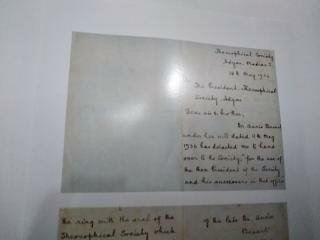 Theosophical Society
Adyar, Madras S.
May 1936
The President, Theosophical
Society, Adyar
Dear sir & brother,
Dr Annie Besant
under her will dated 11th May
has to hand
over to the Society "for the use of
the President of the Society
and his successors in that office
the ring with the seal of the
Theosophical Society which
of the late Dr. Annie
Besant